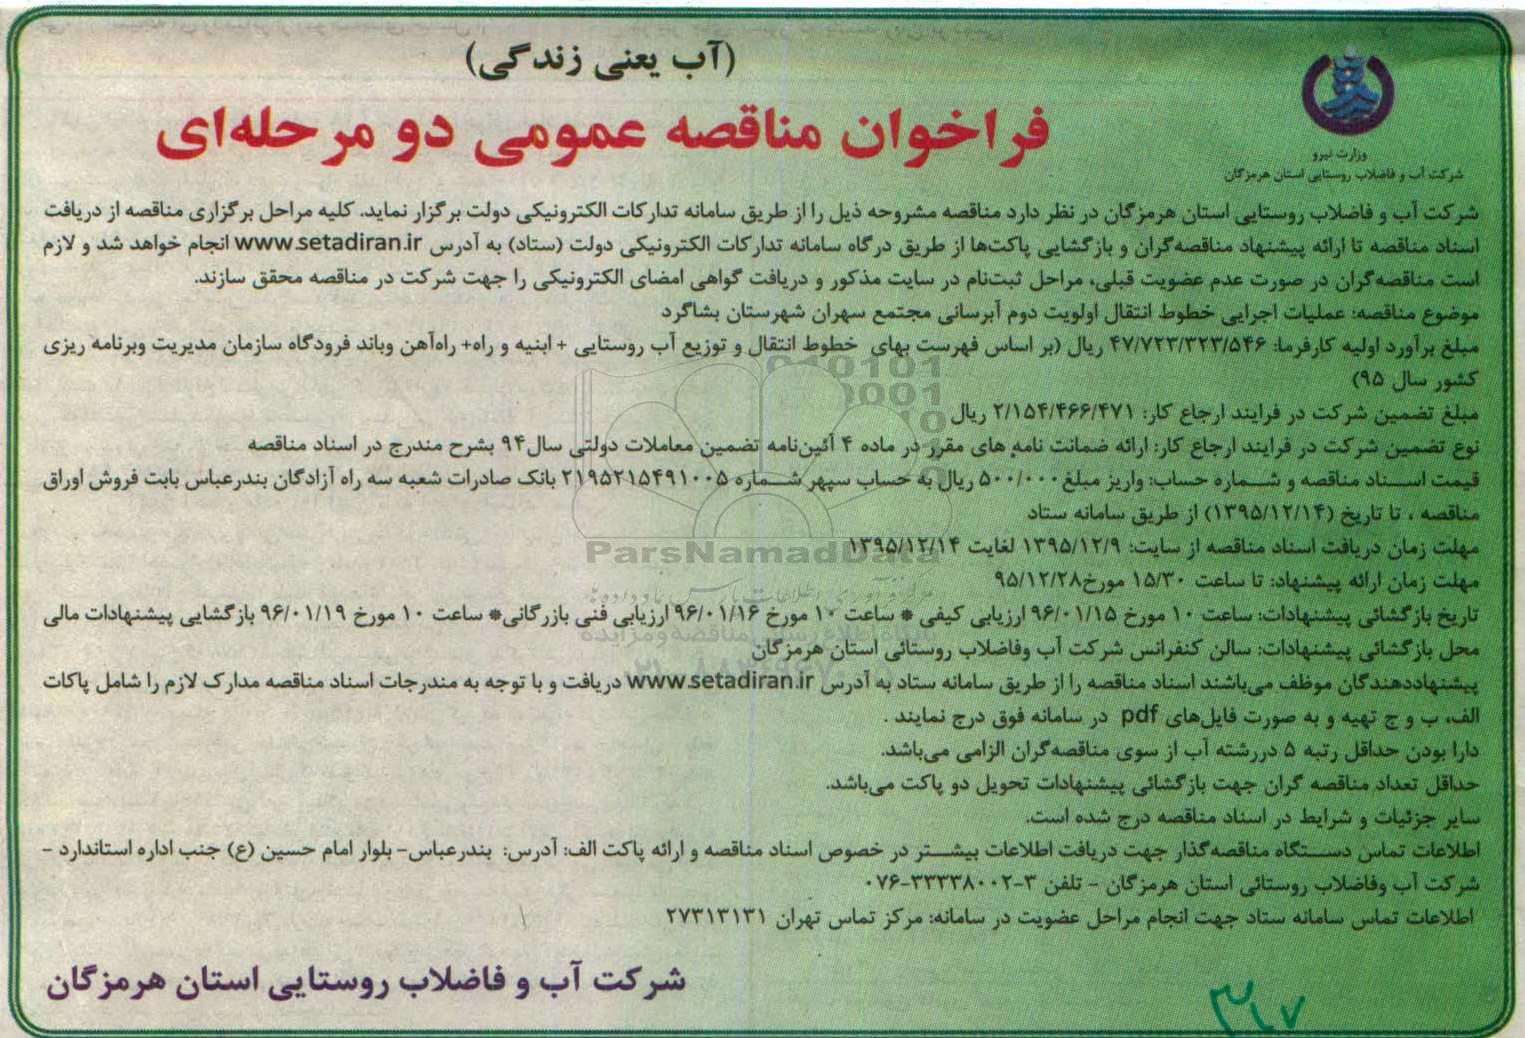 (آب یعنی زندگی)
فراخوان مناقصه عمومی دو مرحله‌ای
وزارت نیرو
شرکت آب و فاضلاب روستایی استان هرمزگان
شرکت آب و فاضلاب روستایی استان هرمزگان در نظر دارد مناقصه مشروحه ذیل را از طریق سامانه تدارکات الکترونیکی دولت برگزار نماید. کلیه مراحل برگزاری مناقصه از دریافت
اسناد مناقصه تا ارائه پیشنهاد مناقصه‌گران و بازگشایی پاکت‌ها از طریق درگاه سامانه تدارکات الکترونیکی دولت (ستاد) به آدرس www.setadiran.ir انجام خواهد شد و لازم
است مناقصه‌گران در صورت عدم عضویت قبلی، مراحل ثبت‌نام در سایت مذکور و دریافت گواهی امضای الکترونیکی را جهت شرکت در مناقصه محقق سازند.
موضوع مناقصه: عملیات اجرایی خطوط انتقال اولویت دوم آبرسانی مجتمع سهران شهرستان بشاگرد
مبلغ برآورد اولیه کارفرما: ۴۷/۷۲۳/۳۲۳/۵۴۶ ریال (بر اساس فهرست بهای خطوط انتقال و توزیع آب روستایی + ابنیه و راه+ راه‌آهن وباند فرودگاه سازمان مدیریت وبرنامه ریزی
کشور سال ۹۵)
مبلغ تضمین شرکت در فرایند ارجاع کار: ۲/۱۵۴/۴۶۶/۴۷۱ ریال
نوع تضمین شرکت در فرایند ارجاع کار: ارائه ضمانت نامه های مقرر در ماده ۴ آئین‌نامه تضمین معاملات دولتی سال۹۴ بشرح مندرج در اسناد مناقصه
قیمت اسـناد مناقصه و شـماره حساب: واریز مبلغ ۵۰۰/۰۰۰ ریال به حساب سپهر شـماره ۲۱۹۵۲۱۵۴۹۱۰۰۵ بانک صادرات شعبه سه راه آزادگان بندرعباس بابت فروش اوراق
مناقصه ، تا تاریخ (۱۳۹۵/۱۲/۱۴) از طریق سامانه ستاد
مهلت زمان دریافت اسناد مناقصه از سایت: ۱۳۹۵/۱۲/۹ لغایت ۱۳۹۵/۱۲/۱۴
مهلت زمان ارائه پیشنهاد: تا ساعت ۱۵/۳۰ مورخ۹۵/۱۲/۲۸
تاریخ بازگشائی پیشنهادات: ساعت ۱۰ مورخ ۹۶/۰۱/۱۵ ارزیابی کیفی * ساعت ۱۰ مورخ ۹۶/۰۱/۱۶ ارزیابی فنی بازرگانی* ساعت ۱۰ مورخ ۹۶/۰۱/۱۹ بازگشایی پیشنهادات مالی
محل بازگشائی پیشنهادات: سالن کنفرانس شرکت آب وفاضلاب روستائی استان هرمزگان
پیشنهاددهندگان موظف می‌باشند اسناد مناقصه را از طریق سامانه ستاد به آدرس www.setadiran.ir دریافت و با توجه به مندرجات اسناد مناقصه مدارک لازم را شامل پاکات
الف، ب و ج تهیه و به صورت فایل‌های pdf در سامانه فوق درج نمایند .
دارا بودن حداقل رتبه ۵ دررشته آب از سوی مناقصه‌گران الزامی می‌باشد.
حداقل تعداد مناقصه گران جهت بازگشائی پیشنهادات تحویل دو پاکت می‌باشد.
سایر جزئیات و شرایط در اسناد مناقصه درج شده است.
اطلاعات تماس دسـتگاه مناقصه‌گذار جهت دریافت اطلاعات بیشـتر در خصوص اسناد مناقصه و ارائه پاکت الف: آدرس: بندرعباس- بلوار امام حسین (ع) جنب اداره استاندارد -
شرکت آب وفاضلاب روستائی استان هرمزگان - تلفن ۳-۳۳۳۳۸۰۰۲-۰۷۶
اطلاعات تماس سامانه ستاد جهت انجام مراحل عضویت در سامانه: مرکز تماس تهران ۲۷۳۱۳۱۳۱
شرکت آب و فاضلاب روستایی استان هرمزگان
ParsNamadData